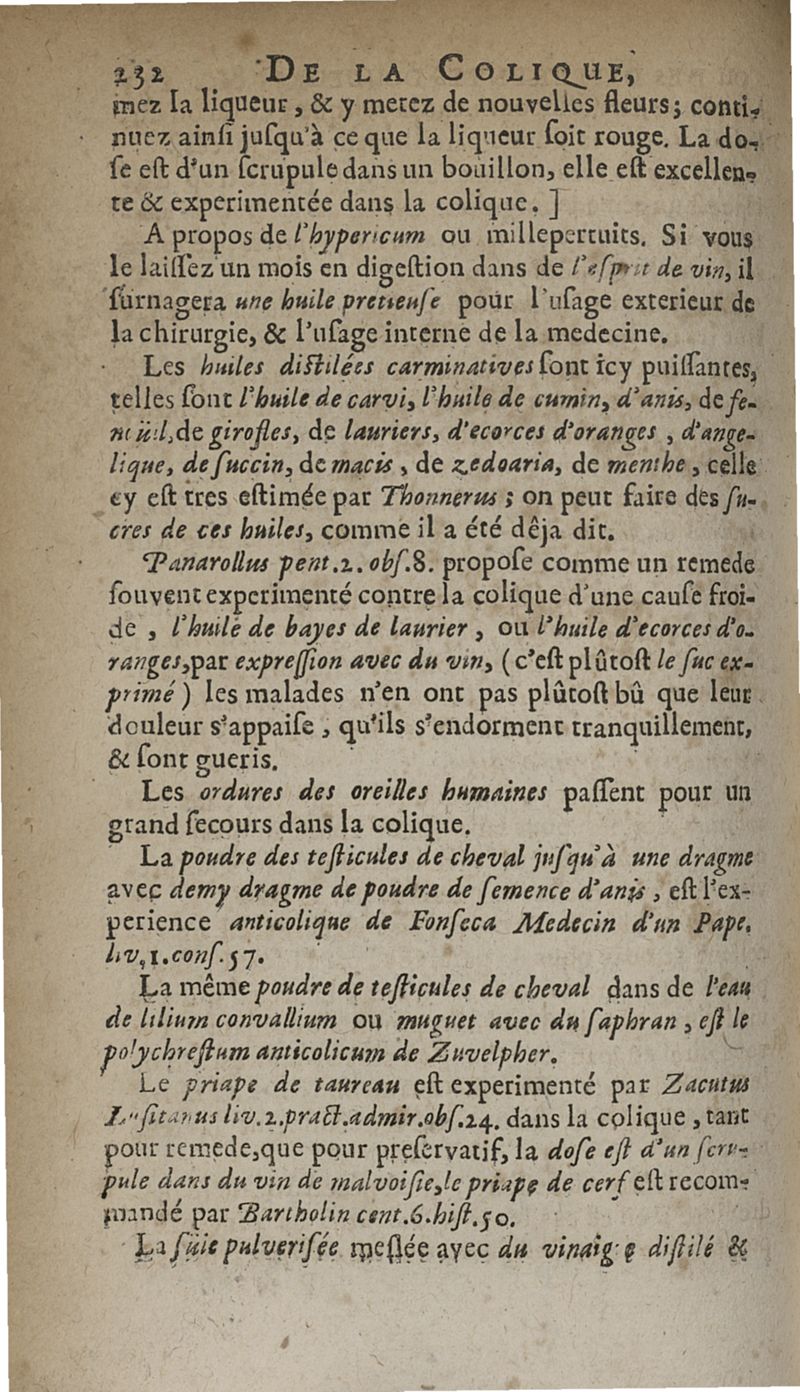 232 DE LA COLIQUE,
mez la liqueur, & y metez de nouvelles fleurs; conti-
nuez ainsi jusqu'à ce que la liqueur soit rouge. La do-
se est d'un scrupule dans un boüillon, elle est excellen-
te & experimentée dans la colique. ]
A propos de l'hypericum ou millepertuits. Si vous
le laissez un mois en digestion dans de l'esprit de vin, il
surnagera une huile pretieuse pour l'usage exterieur de
la chirurgie, & l'usage interne de la medecine.
Les huiles distilées carminatives sont icy puissantes,
telles sont l'huile de carvi, l'huile de cumin, d'anis, de fe-
noüil, de girofles, de lauriers, d'ecorces d'oranges , d'ange-
lique, de succin, de macis , de zedoaria, de menthe , celle
cy est tres estimée par Thonnerus ; on peut faire des su-
cres de ces huiles, comme il a été dêja dit.
Panarollus pent.2. obs.8. propose comme un remede
souvent experimenté contre la colique d'une cause froi-
de , l'huile de bayes de laurier , ou l'huile d'ecorces d'o-
ranges,par expression avec du vin, ( c'est plûtost le suc ex-
primé ) les malades n'en ont pas plûtost bû que leur
douleur s'appaise , qu'ils s'endorment tranquillement,
& sont gueris.
Les ordures des oreilles humaines passent pour un
grand secours dans la colique.
La poudre des testicules de cheval jusqu'à une dragme
avec demy dragme de poudre de semence d'anis , est l'ex-
perience anticolique de Fonseca Medecin d'un Pape.
liv.1.cons.57.
La même poudre de testicules de cheval dans de l'eau
de lilium convallium ou muguet avec du saphran , est le
polychrestum anticolicum de Zuvelpher.
Le priape de taureau est experimenté par Zacutus
Lusitanus liv.2.pract.admir.obs.24. dans la colique , tant
pour remede,que pour preservatif, la dose est d'un scru-
pule dans du vin de malvoisie,le priape de cerf est recom-
mandé par Bartholin cent.6.hist.50.
La suie pulverisée meslée avec du vinaigre distilé &